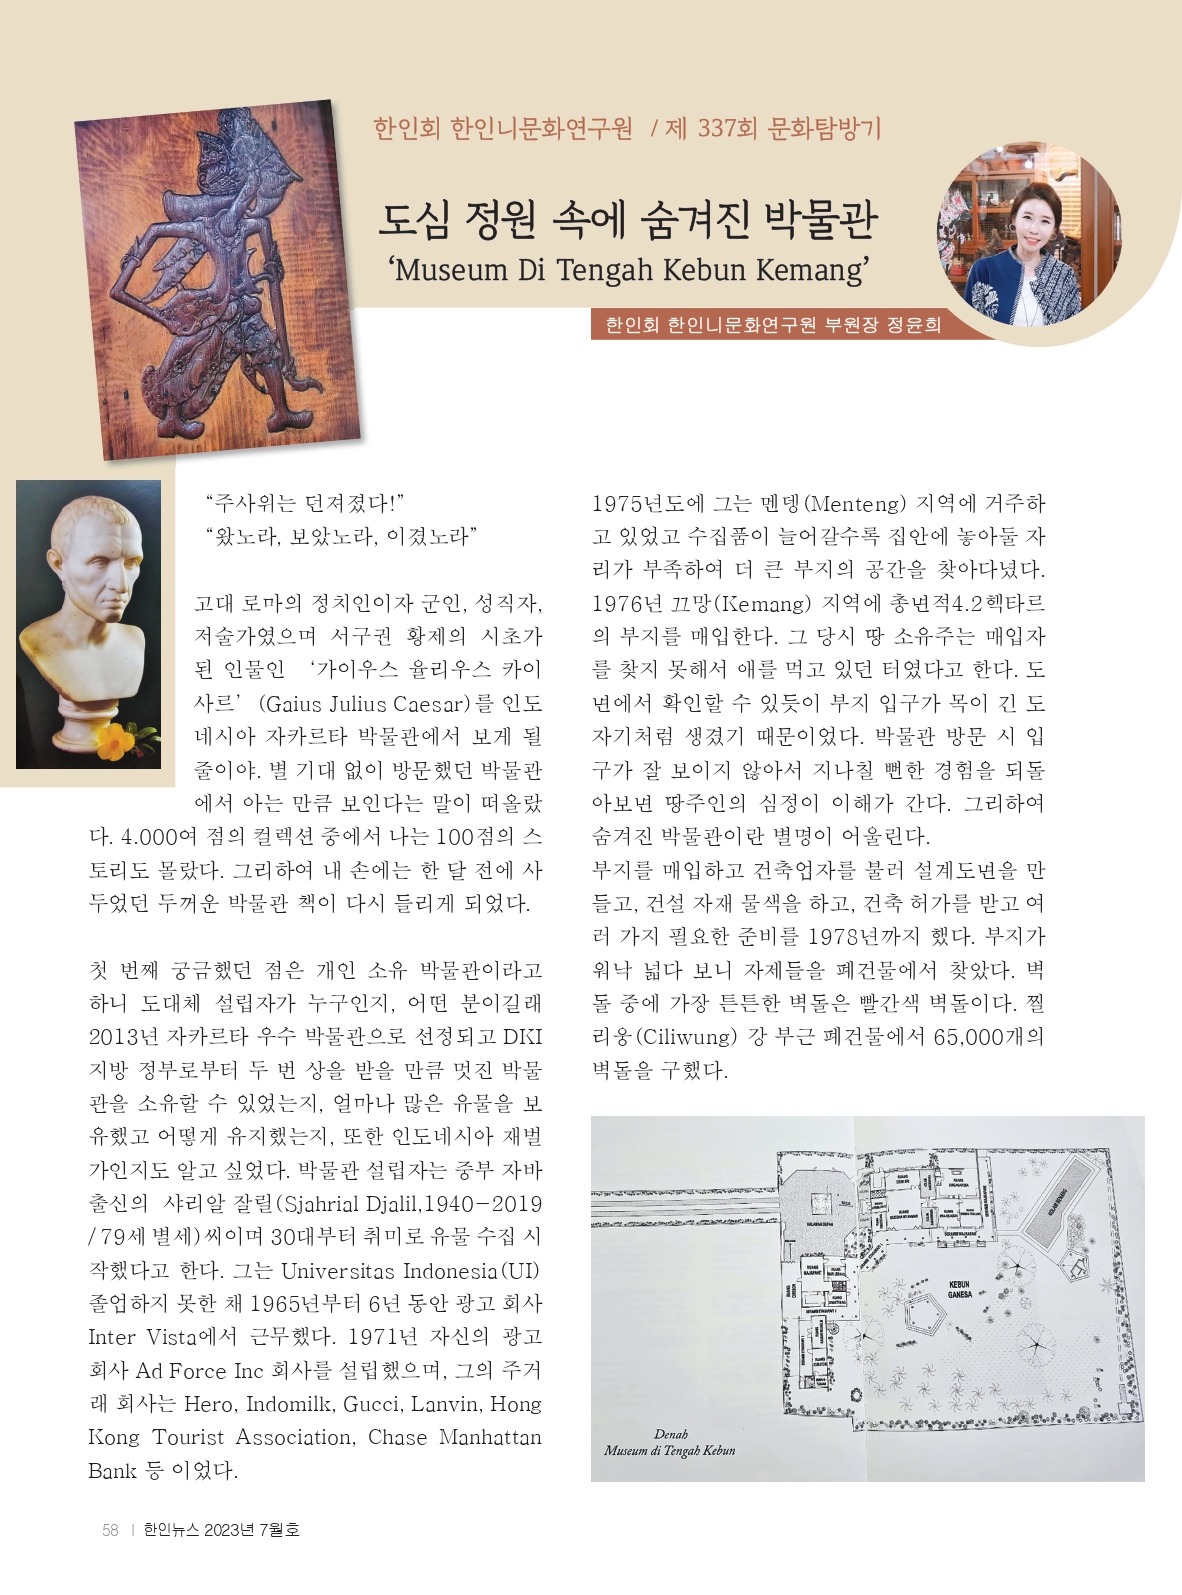 한인회 한인니문화연구원 / 제 337회 문화탐방기
도심 정원 속에 숨겨진 박물관
‘Museum Di Tengah Kebun Kemang’
한인회 한인니문화연구원 부원장 정윤희
“주사위는 던져졌다!”
“왔노라, 보았노라, 이겼노라”
고대 로마의 정치인이자 군인, 성직자,
저술가였으며 서구권 황제의 시초가
된 인물인 ‘가이우스 율리우스 카이
사르’ (Gaius Julius Caesar)를 인도
네시아 자카르타 박물관에서 보게 될
줄이야. 별 기대 없이 방문했던 박물관
에서 아는 만큼 보인다는 말이 떠올랐
다. 4.000여 점의 컬렉션 중에서 나는 100점의 스
토리도 몰랐다. 그리하여 내 손에는 한 달 전에 사
두었던 두꺼운 박물관 책이 다시 들리게 되었다.
첫 번째 궁금했던 점은 개인 소유 박물관이라고
하니 도대체 설립자가 누구인지, 어떤 분이길래
2013년 자카르타 우수 박물관으로 선정되고 DKI
지방 정부로부터 두 번 상을 받을 만큼 멋진 박물
관을 소유할 수 있었는지, 얼마나 많은 유물을 보
유했고 어떻게 유지했는지, 또한 인도네시아 재벌
가인지도 알고 싶었다. 박물관 설립자는 중부 자바
출신의 샤리알 잘릴(Sjahrial Djalil,1940-2019
/79세 별세)씨이며 30대부터 취미로 유물 수집 시
작했다고 한다. 그는 Universitas Indonesia(UI)
졸업하지 못한 채 1965년부터 6년 동안 광고 회사
Inter Vista에서 근무했다. 1971년 자신의 광고
회사 Ad Force Inc 회사를 설립했으며, 그의 주거
래 회사는 Hero, Indomilk, Gucci, Lanvin, Hong
Kong Tourist Association, Chase Manhattan
Bank 등 이었다.
1975년도에 그는 멘뎅(Menteng) 지역에 거주하
고 있었고 수집품이 늘어갈수록 집안에 놓아둘 자
리가 부족하여 더 큰 부지의 공간을 찾아다녔다.
1976년 끄망(Kemang) 지역에 총면적4.2헥타르
의 부지를 매입한다. 그 당시 땅 소유주는 매입자
를 찾지 못해서 애를 먹고 있던 터였다고 한다. 도
면에서 확인할 수 있듯이 부지 입구가 목이 긴 도
자기처럼 생겼기 때문이었다. 박물관 방문 시 입
구가 잘 보이지 않아서 지나칠 뻔한 경험을 되돌
아보면 땅주인의 심정이 이해가 간다. 그리하여
숨겨진 박물관이란 별명이 어울린다.
부지를 매입하고 건축업자를 불러 설계도면을 만
들고, 건설 자재 물색을 하고, 건축 허가를 받고 여
러 가지 필요한 준비를 1978년까지 했다. 부지가
워낙 넓다 보니 자제들을 폐건물에서 찾았다. 벽
돌 중에 가장 튼튼한 벽돌은 빨간색 벽돌이다. 찔
리웅(Ciliwung) 강 부근 폐건물에서 65,000개의
벽돌을 구했다.
HALAMAN DEPAN
KOLAM RENANG
KEBUN
GANESA
Denah
Museum di Tengah Kebun
58 | 한인뉴스 2023년 7월호